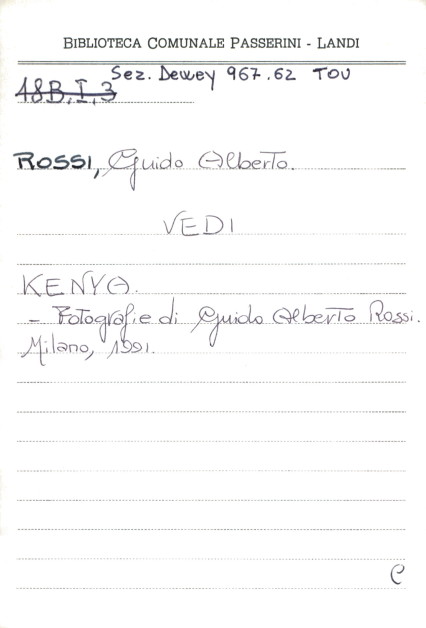 BIBLIOTECA COMUNALE PASSERINI - LANDI
Sez. Dewey 967.62 TOU
48B.I.3
ROSSI, Guido Alberto.
VEDI
KENYA.
- Fotografie di Guido Alberto Rossi.
Milano, 1991.
C